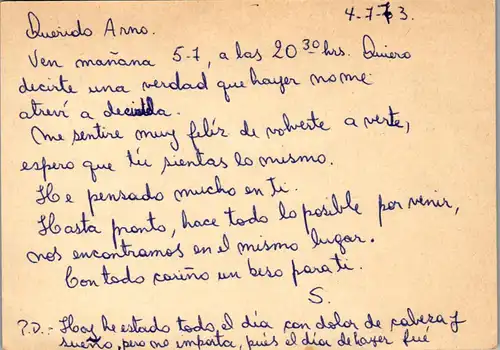 4-7-73.
Querido Arno.
Ven mañana 5-7, a las 20 30 hrs. Quiero
decirte una verdad que hayer no me
atreví a decirla.
Me sentire muy felíz de volverte a verte,
espero que tú sientas lo mismo.
He pensado mucho en ti.
Hasta pronto, hace todo lo posible por venir,
nos encontramos en el mismo lugar.
Con todo cariño un beso para ti.
S.
P.D.- Hoy he estado todo el día con dolor de cabeza y
sueño, pero me importa, pués el día de hayer fué